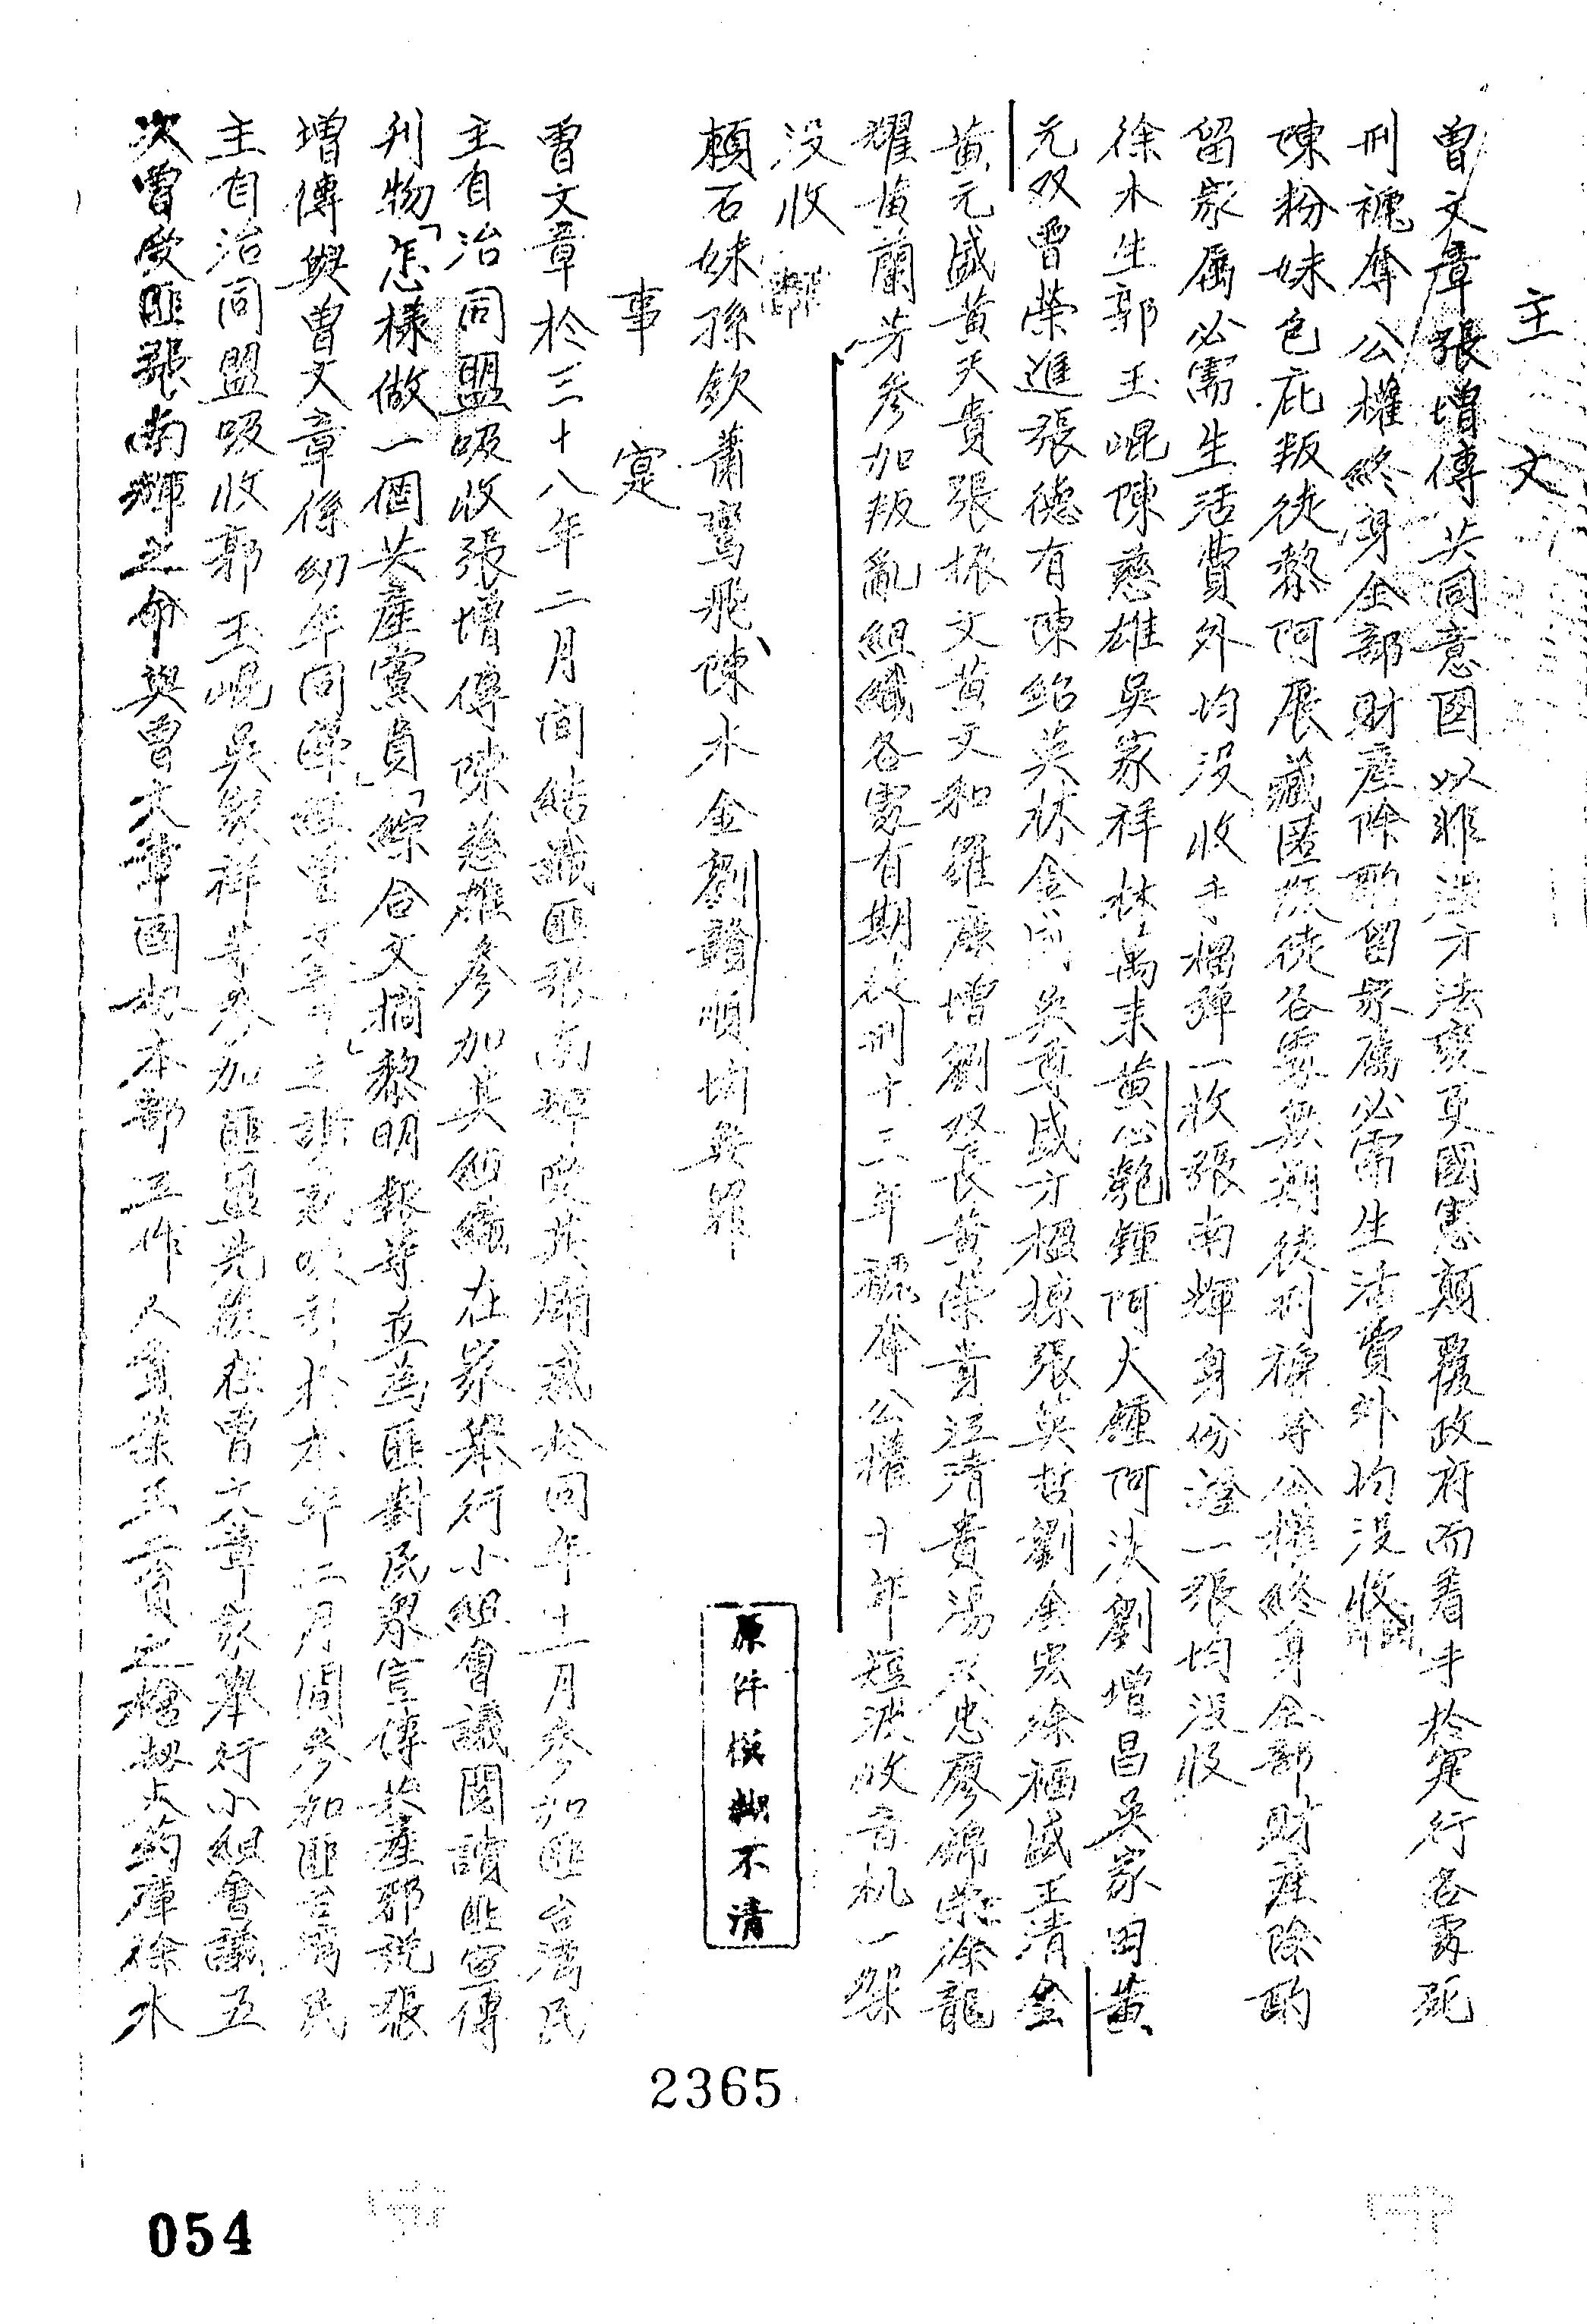 主文
曾文章張增傳共同意圖以非法方法變更國憲顛覆政府而着手於寔行各處死
刑褫奪公權終身全部財產除酌留家屬必需生活費外均沒收
陳粉妹包庇叛徒黎阿展藏匿叛徒各處無期徒刑褫奪公權終身全部財產除酌
留家屬必需生活費外均沒收手榴彈一枚張南輝身份證一張均沒收
徐木生郭玉崐陳慈雄吳家祥林萬來黃公魁鍾阿大鍾阿法劉增昌吳家田黃
元双曾榮進張德有陳紹英林金 吳尊盛方楹棟張英哲劉金宏徐福盛王清金
黃元盛黃天貴張振文黃文和羅康增劉双長黃榮貴江清貴湯双忠廖錦榮徐龍
耀黃蘭芳參加叛亂組織各處有期徒刑十二年褫奪公權十年短波收音机一架
沒收
賴石妹孫欽蕭鸞飛陳水金劉贊順均無罪
事寔
曾文章於三十八年二月間結識匪張南輝受其煽惑於同年十二月參加匪台灣民
主自治同盟吸收張增傳陳慈雄參加其組織在家舉行小組會議閱讀匪宣傳
刊物「怎樣做一個共產黨員」「綜合文摘」黎明報等並為匪對民眾宣傳共產邪說張
增傳與曾文章係幼年同學 曾文章之 吸引於本年二月間參加匪台灣民
主自治同盟吸收郭玉崐吳家祥等參加匪盟先後在曾文章家舉行小組會議五
次曾受匪張南輝之命與曾文章圖劫本部工作人員葉玉 之槍劫火药庫徐木
原件模糊不清
2365
054